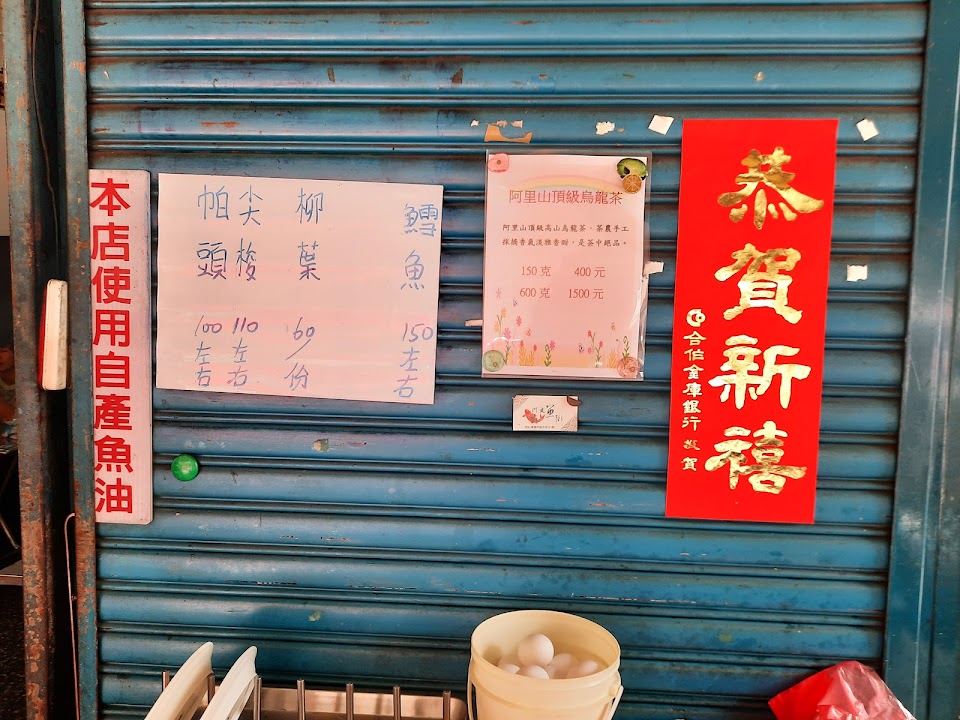 本店使用自產魚油
帕頭 100左右
尖梭 110左右
柳葉 60/份
鱈魚 150左右
阿里山頂級烏龍茶
阿里山頂級高山烏龍茶，茶農手工
採摘香氣淡雅香甜，是茶中絕品。
150 克 400 元
600 克 1500 元
恭賀新禧
合作金庫銀行 敬賀